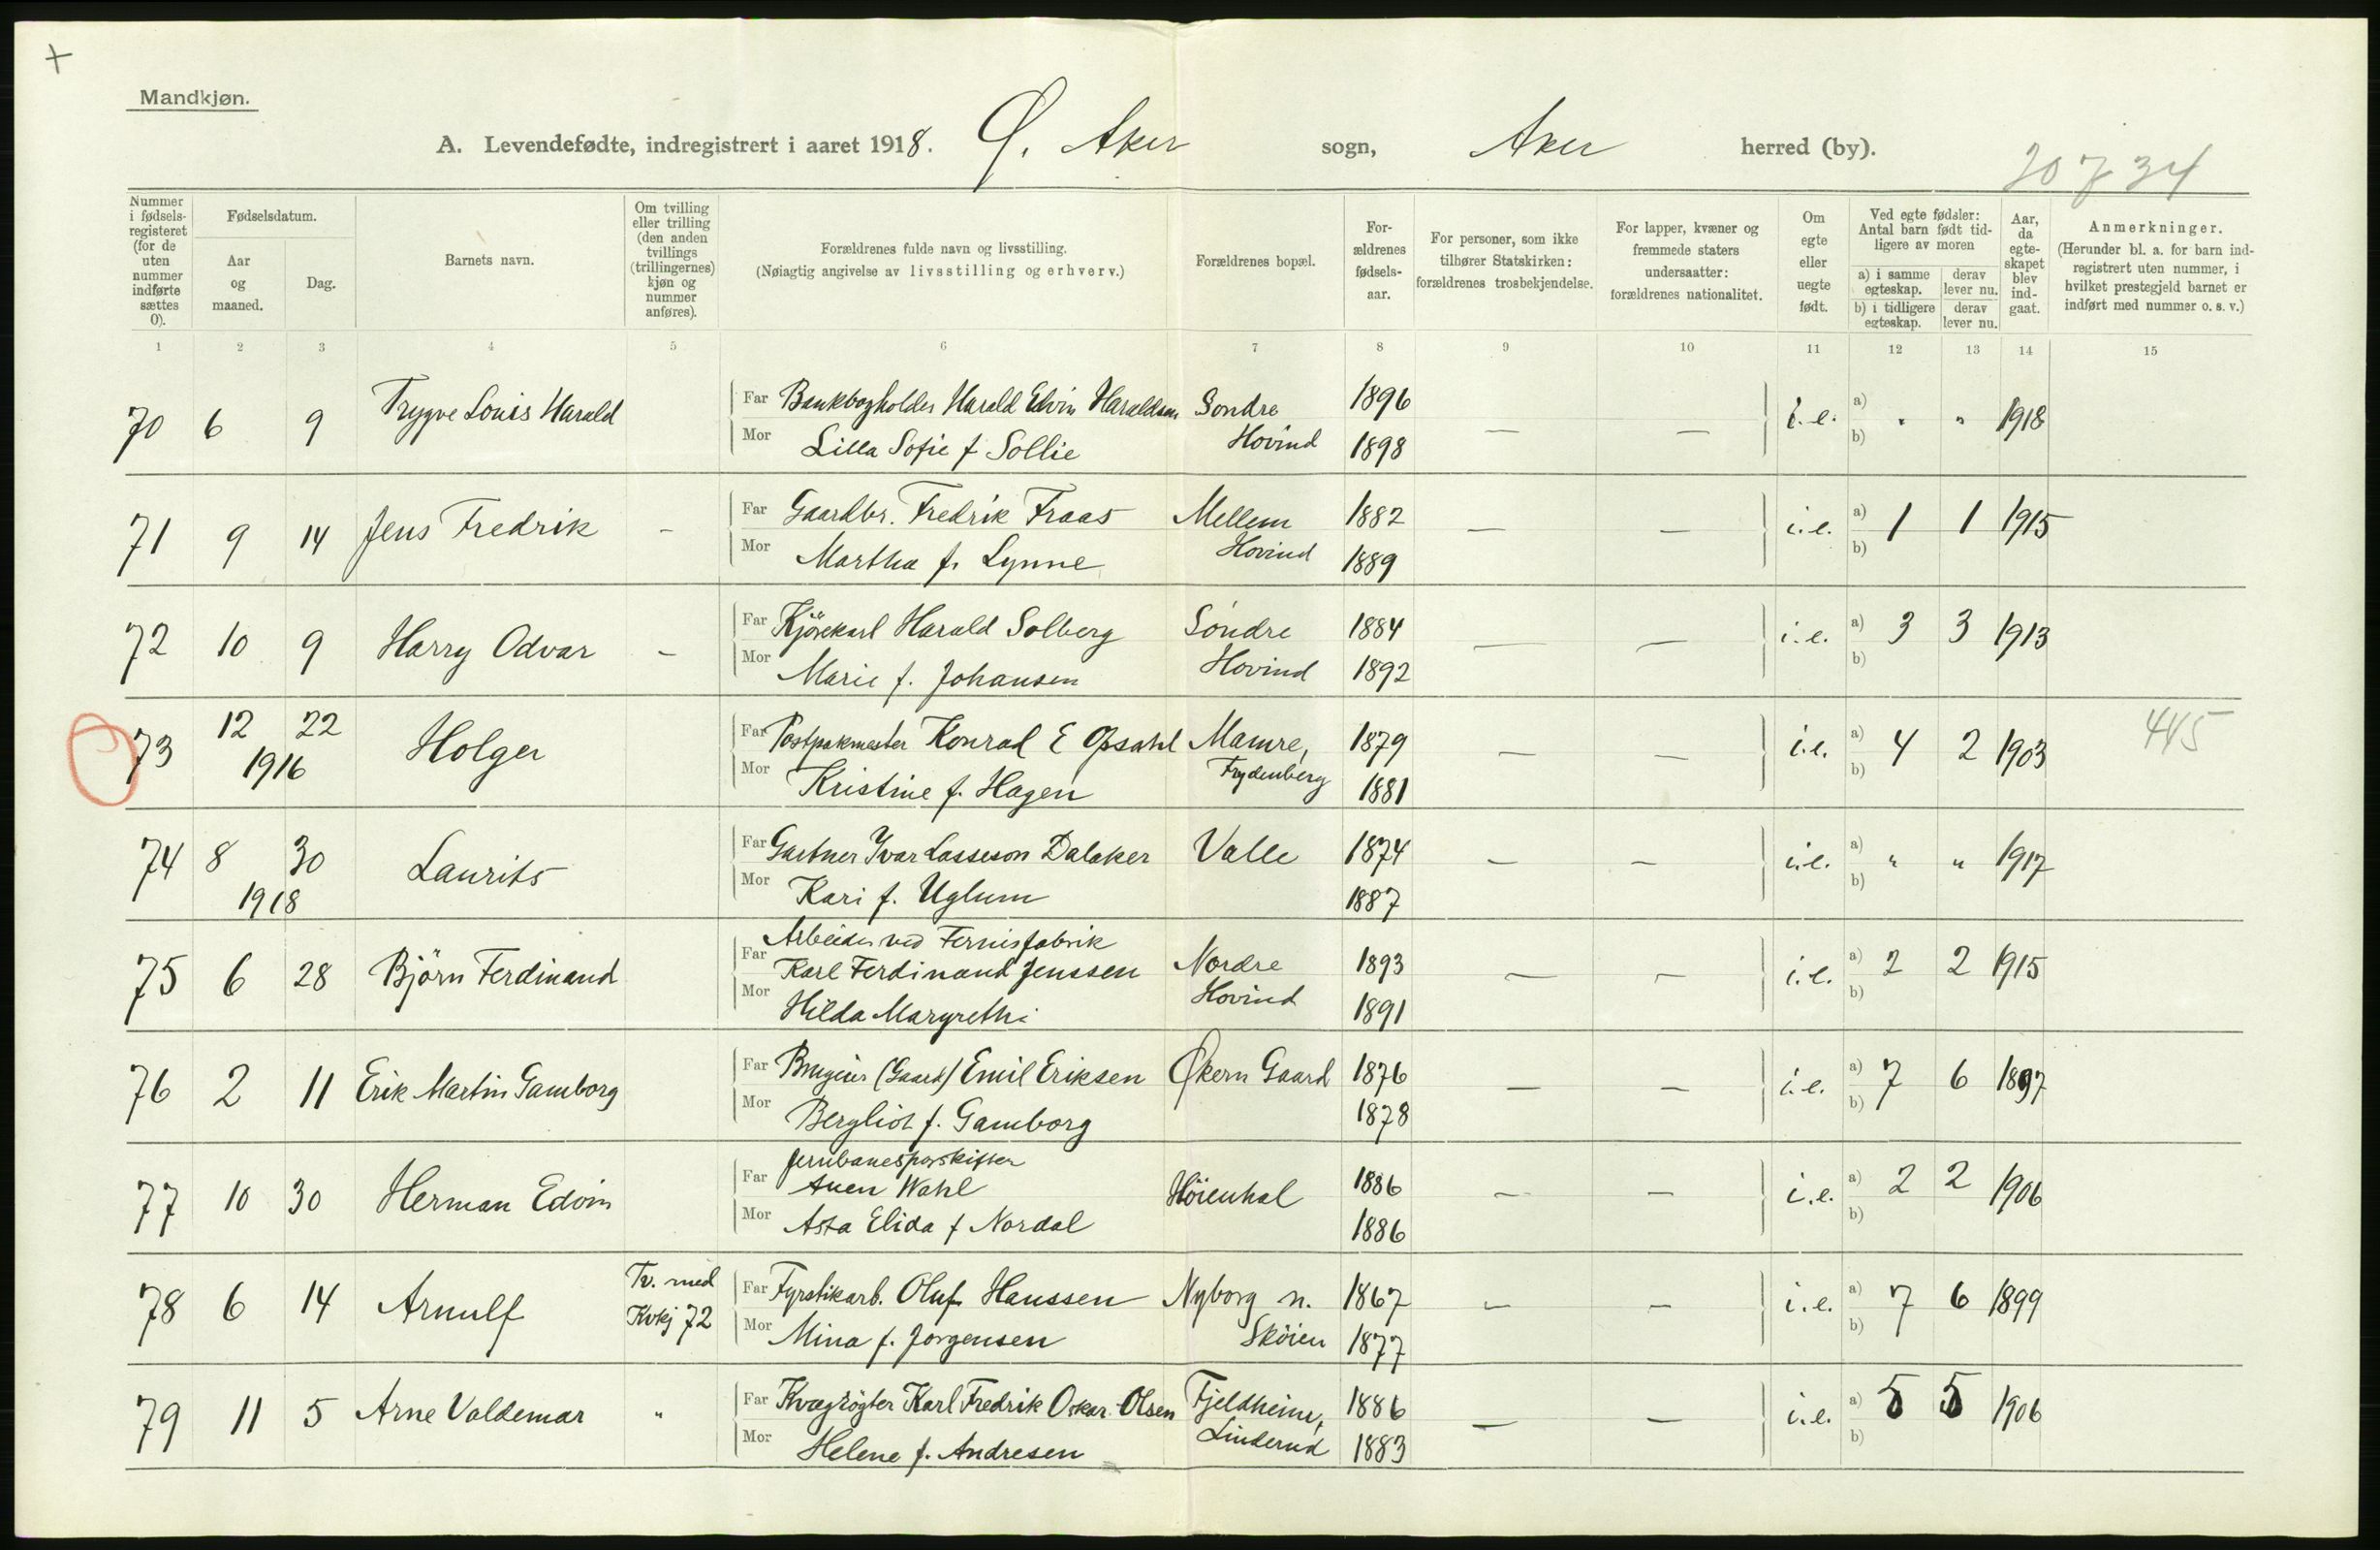 +
Mandkjøn.
A. Levendefødte, indregistrert i aaret 1918. Ø. Aker sogn, Aker herred (by).
20734
Nummer i fødsels-registeret (for de uten nummer indførte sættes 0).
Fødselsdatum.
Aar og maaned.
Dag.
Barnets navn.
Om tvilling eller trilling (den anden tvillings (trillingernes) kjøn og nummer anføres).
Forældrenes fulde navn og livsstilling.
(Nøiagtig angivelse av livsstilling og erhverv.)
Forældrenes bopæl.
For-ældrenes fødsels-aar.
For personer, som ikke tilhører Statskirken: forældrenes trosbekjendelse.
For lapper, kvæner og fremmede staters undersaatter: forældrenes nationalitet.
Om egte eller uegte født.
Ved egte fødsler: Antal barn født tid-ligere av moren
a) i samme egteskap.
derav lever nu.
b) i tidligere egteskap.
derav lever nu.
Aar, da egte-skapet blev ind-gaat.
Anmerkninger.
(Herunder bl. a. for barn ind-registrert uten nummer, i hvilket prestegjeld barnet er indført med nummer o. s. v.)
1 2 3 4 5 6 7 8 9 10 11 12 13 14 15
70 6 9 Trygve Louis Harald Far Bankbogholder Harald Edvin Haraldsen Søndre 1896 — — i.e. a) " " 1918
Mor Lilla Sofie f Sollie Hovind 1898 b)
71 9 14 Jens Fredrik - Far Gaardbr. Fredrik Fraas Mellem 1882 — — i.e. a) 1 1 1915
Mor Martha f. Lynne Hovind 1889 b)
72 10 9 Harry Odvar - Far Kjørekarl Harald Solberg Søndre 1884 — — i.e. a) 3 3 1913
Mor Marie f. Johansen Hovind 1892 b)
73 12 22 Holger Far Postpakmester Konrad E Opsahl Mamre, 1879 — — i.e. a) 4 2 1903 445
1916 Mor Kristine f. Hagen Frydenberg 1881 b)
74 8 30 Laurits Far Gartner Ivar Lasseson Dalaker Valle 1874 — — i.e. a) " " 1917
1918 Mor Kari f. Uglum 1887 b)
Arbeider ved Fernisfabrik
75 6 28 Bjørn Ferdinand Far Karl Ferdinand Jenssen Nordre 1893 — — i.e. a) 2 2 1915
Mor Hilda Margrethe Hovind 1891 b)
76 2 11 Erik Martin Gamborg Far (Gaard) Emil Eriksen Økern Gaard 1876 — — i.e. a) 7 6 1897
Mor Bergliot f. Gamborg 1878 b)
Jernbanesporskifter
77 10 30 Herman Edvin Far Wahl Høienhal 1886 — — i.e. a) 2 2 1906
Mor Asta Elida f Nordal 1886 b)
78 6 14 Arnulf Tv. med Far Fyrstikarb. Oluf Hanssen Nyborg n. 1867 — — i.e. a) 7 6 1899
Kvkj 72 Mor Mina f. Jørgensen Skøien 1877 b)
79 11 5 Arne Valdemar " Far Kvægrøgter Karl Fredrik Oskar Olsen Fjeldheim, 1886 — — i.e. a) 5 5 1906
Mor Helene f. Andresen Linderud 1883 b)